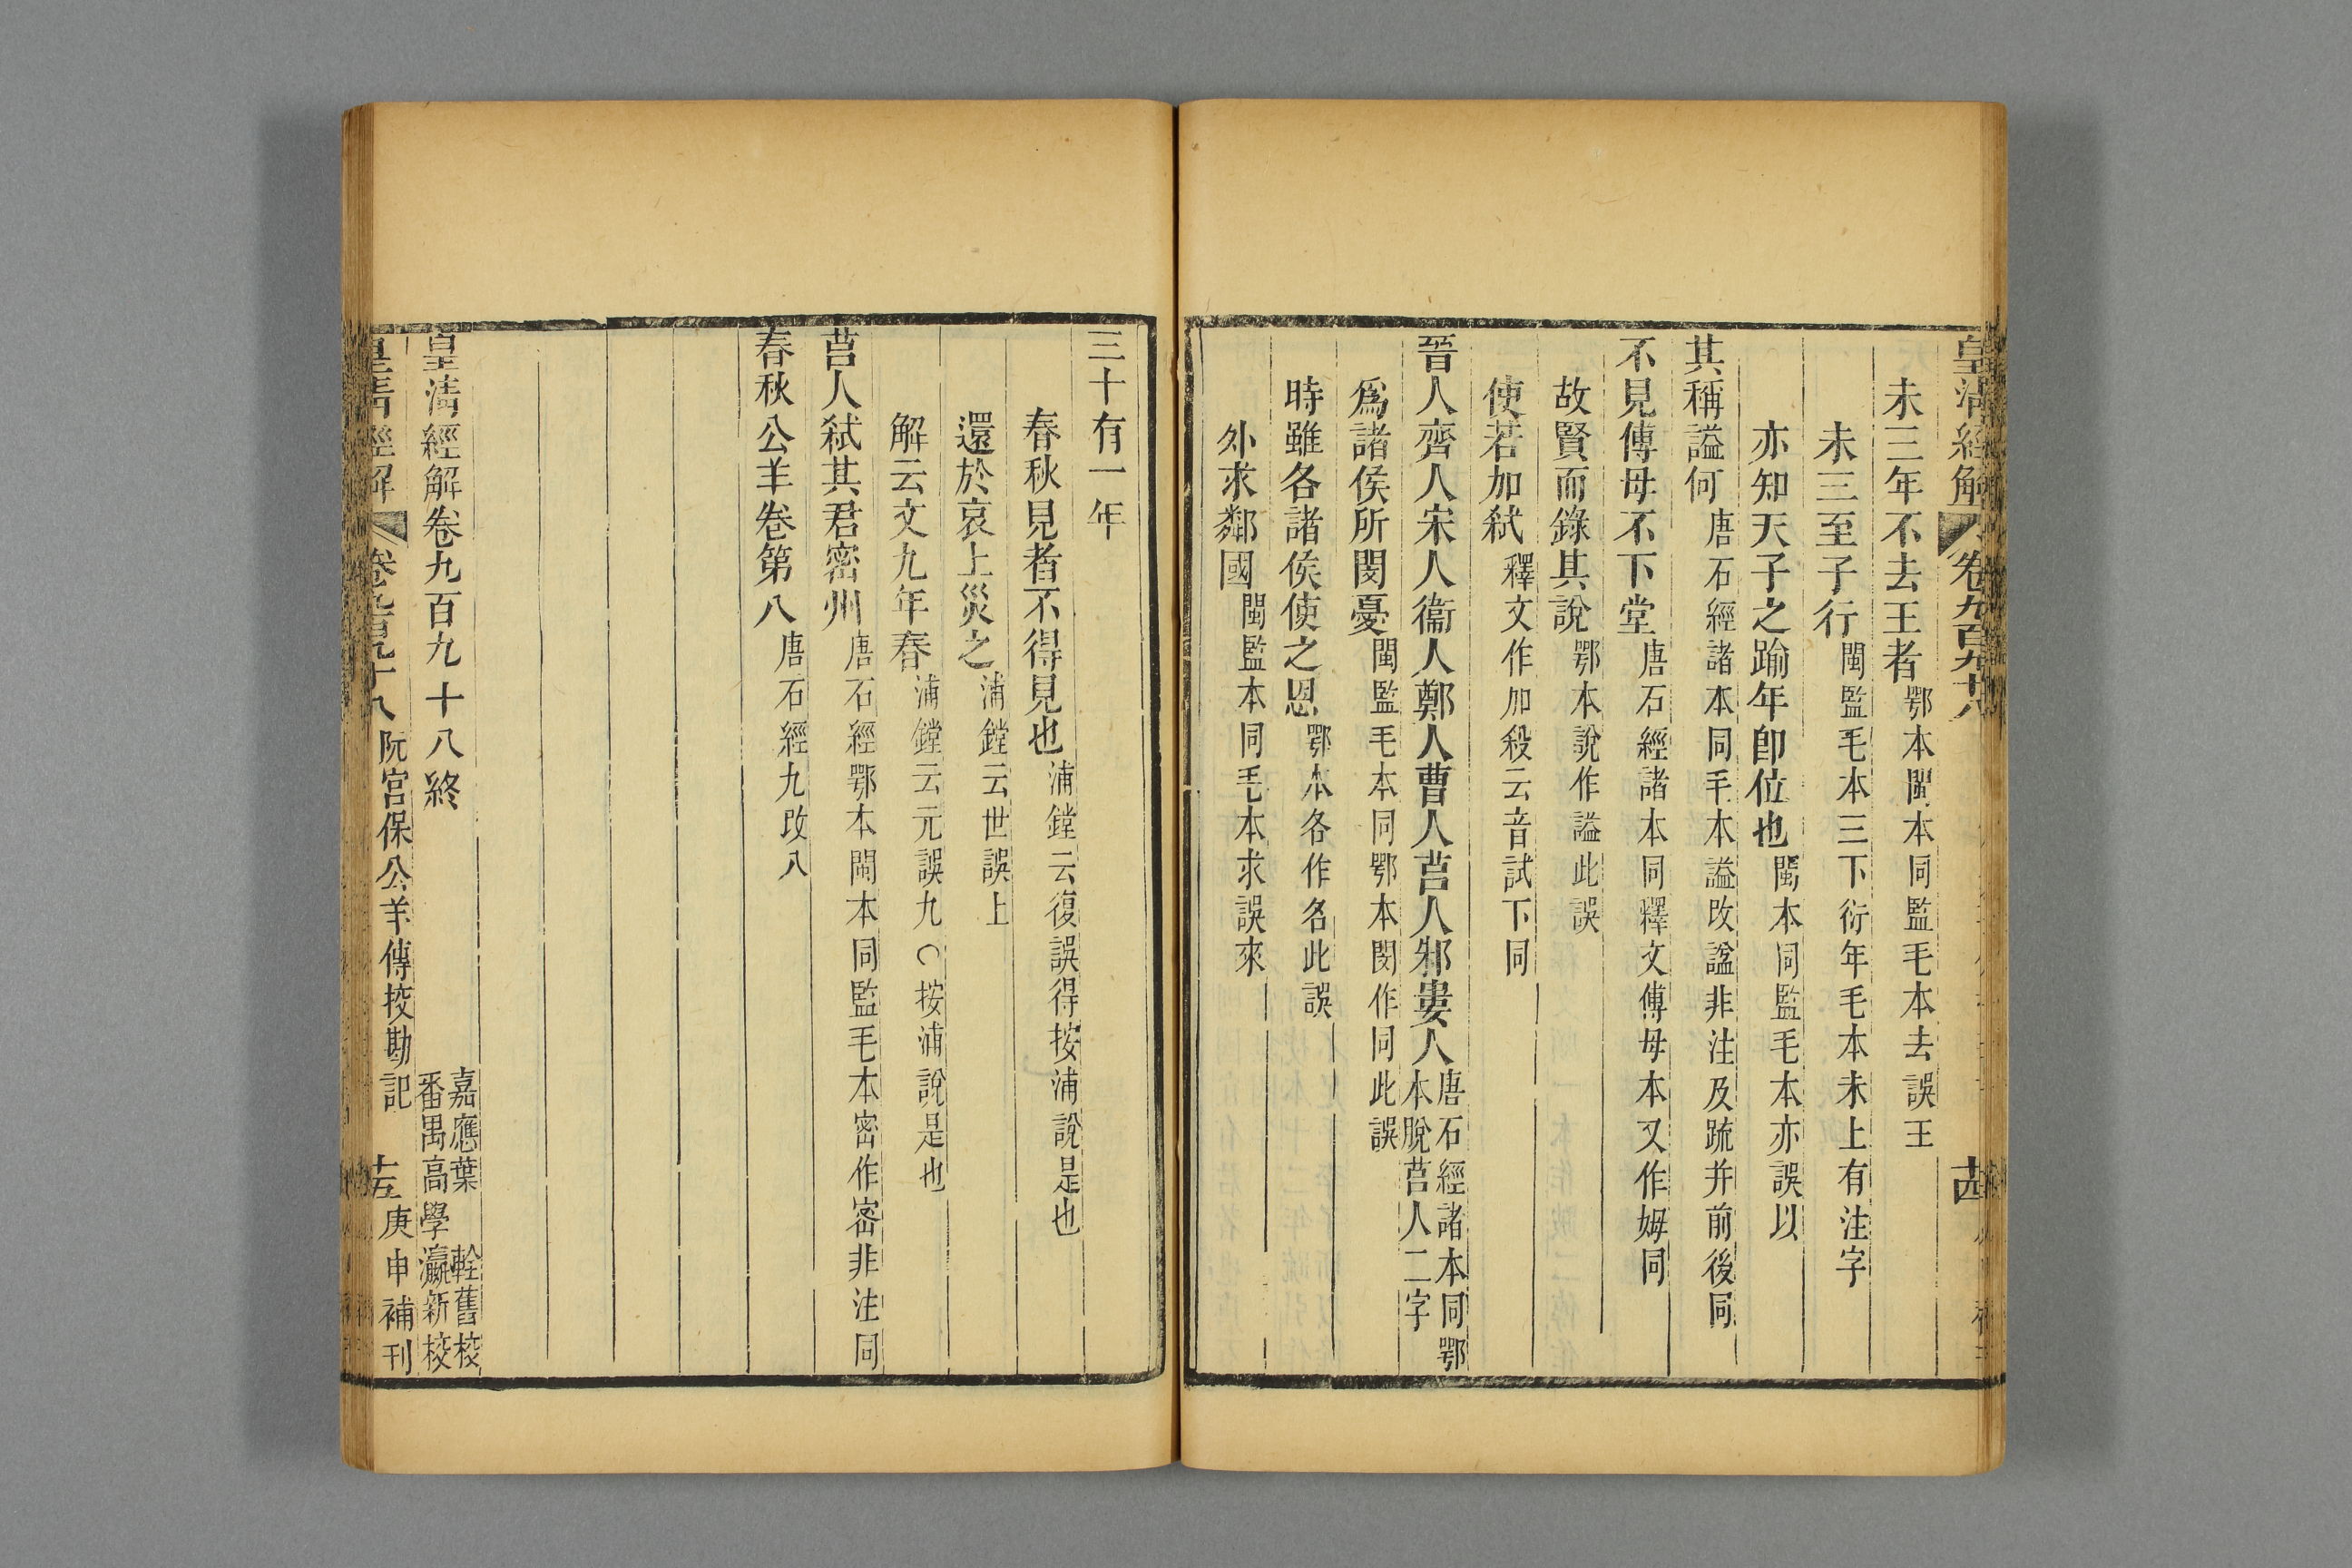 皇清經解 卷九百九十八 十四
未三年不去王者鄂本閩本同監毛本去誤王
未三至子行閩監毛本三下衍年毛本未上有注字
亦知天子之踰年卽位也閩本同監毛本亦誤以
其稱謚何唐石經諸本同毛本謚改諡非注及疏并前後同
不見傅母不下堂唐石經諸本同釋文傅母本又作姆同
故賢而錄其說鄂本說作謚此誤
使若加弑釋文作加殺云音試下同
晉人齊人宋人衞人鄭人曹人莒人邾婁人唐石經諸本同鄂本脫莒人二字
爲諸侯所閔憂閩監毛本同鄂本閔作同此誤
時雖各諸侯使之恩鄂本各作名此誤
外求鄰國閩監本同毛本求誤來
三十有一年
春秋見者不得見也浦鏜云復誤得按浦說是也
還於哀上災之浦鏜云世誤上
解云文九年春浦鏜云元誤九○按浦說是也
莒人弑其君密州唐石經鄂本閩本同監毛本密作宻非注同
春秋公羊卷第八唐石經九改八
皇清經解卷九百九十八終
嘉應葉 輇舊校
番禺高學瀛新校
皇清經解 卷九百九十八 阮宮保公羊傳挍勘記 十五 庚申補刊